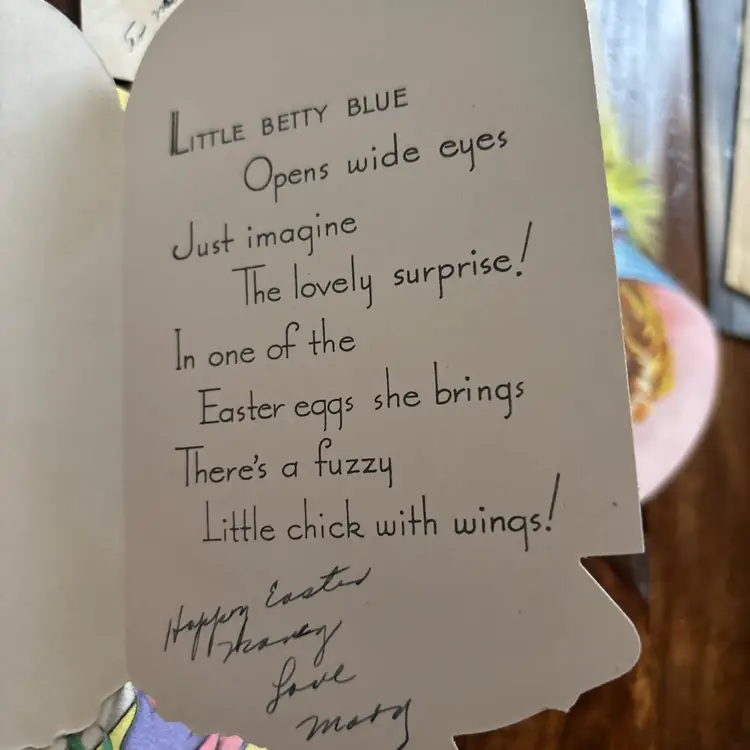 LITTLE BETTY BLUE
Opens wide eyes
Just imagine
The lovely surprise!
In one of the
Easter eggs she brings
There's a fuzzy
Little chick with wings!
Happy Easter
Love